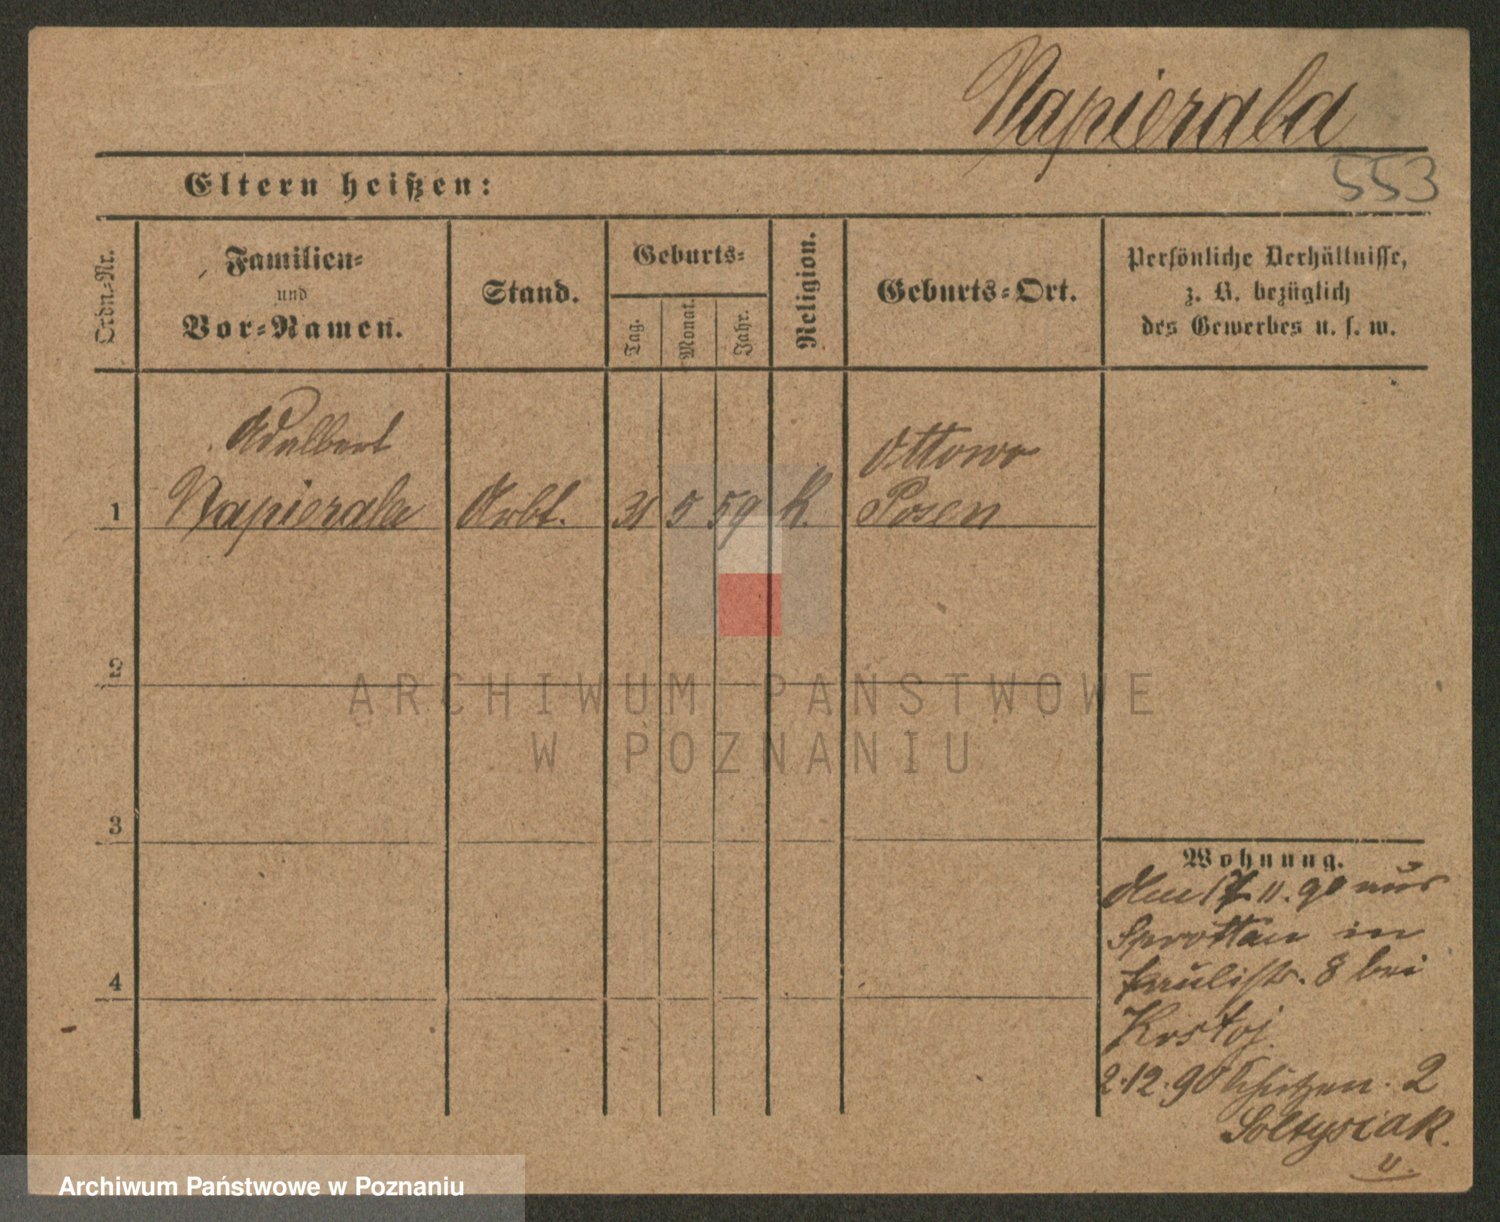 Napierala
553
Eltern heißen:
Ordn.-Nr.
Familien-
und
Vor-Namen.
Stand.
Geburts-
Tag.
Monat.
Jahr.
Religion.
Geburts-Ort.
Persönliche Verhältnisse,
z. B. bezüglich
des Gewerbes u. s. w.
Adalbert
Ottowo
1 Napierala Arbt. 31 5 59 k. Posen
2
ARCHIWUM PAŃSTWOWE
W POZNANIU
3
4
Wohnung.
Am 17 11. 90 aus
Sprottau in
Paulistr. 8 bei
2.12.90 Schützen. 2
Soltysiak.
u.
Archiwum Państwowe w Poznaniu